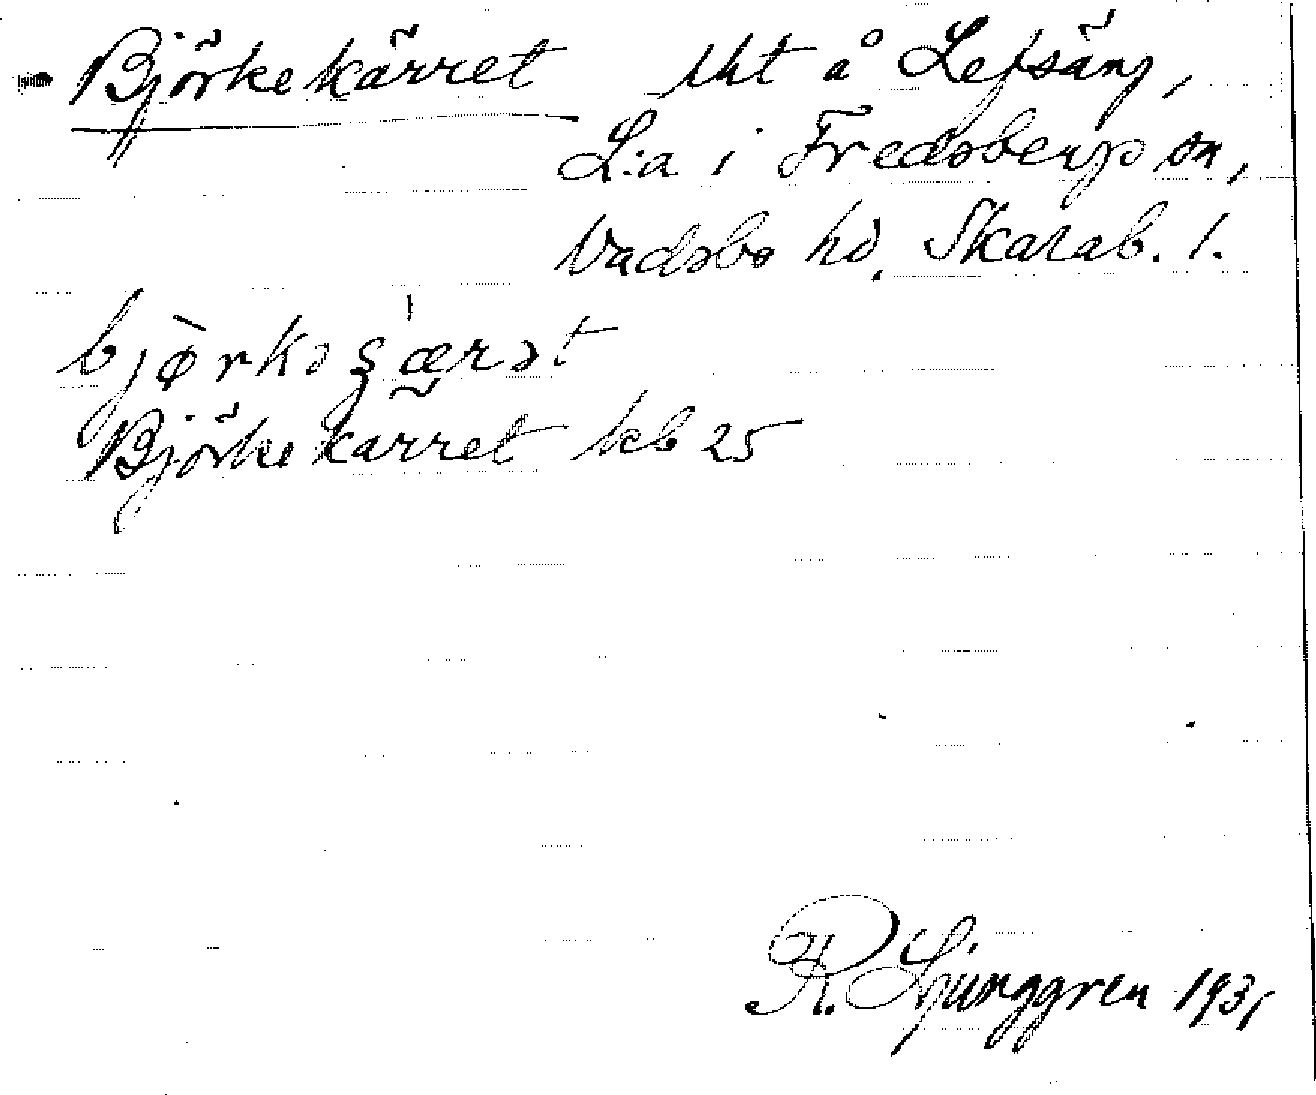 Björkekärret tht å Lefsäng,
L:a i Fredsbergs sn,
Vadsbo hd. Skarab. l.
bjørkəʂærət
Björkekärret kb 25
R. Ljunggren 1931